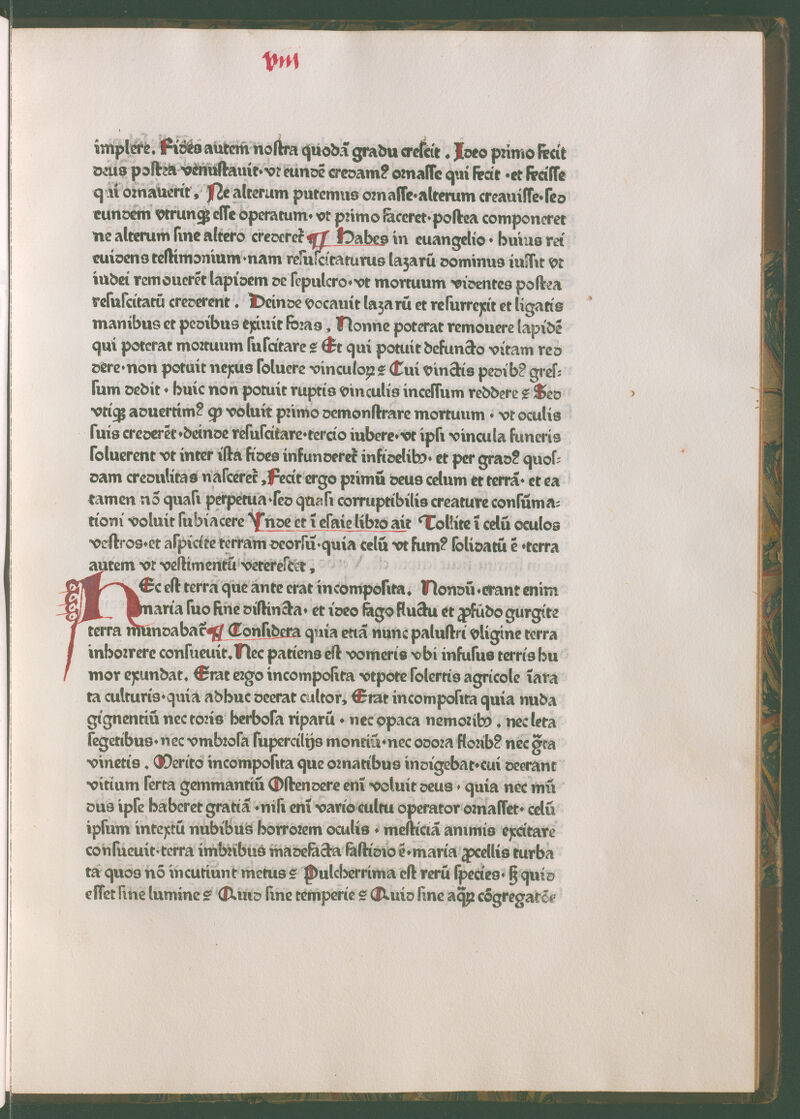 viii
implere. Fides autem nostra quodā gradu crescit. Ideo primo fecit
deus postea venustauit· vt eundē credam⁹ ornasse qui fecit ·et fecisse
qui ornauerit, Ne alterum putemus ornasse·alterum creauisse·sed
eundem vtrunqꝫ esse operatum· vt primo faceret·postea componeret
ne alterum sine altero crederet᷑ ¶ Habes in euangelio· huius rei
euidens testimonium·nam resuscitaturus lazarū dominus iussit vt
iudei remouerēt lapidem de sepulcro·vt mortuum videntes postea
resuscitatū crederent. Deinde vocauit lazarū et resurrexit et ligatis
manibus et pedibus exiuit foras, Nonne poterat remouere lapidē
qui poterat mortuum suscitare ? Et qui potuit defuncto vitam red
dere·non potuit nexus soluere vinculoꝝ ? Cui vinctis pedib⁹ gres⸗
sum dedit · huic non potuit ruptis vinculis incessum reddere ? Sed
vtiqꝫ aduertim⁹ ꝙ voluit primo demonstrare mortuum · vt oculis
suis crederēt·deinde resuscitare·tercio iubere·vt ipsi vincula funeris
soluerent vt inter ista fides infunderet᷑ infidelibꝫ· et per grad⁹ quos⸗
dam credulitas nasceret᷑, Fecit ergo primū deus celum et terrā· et ea
tamen nō quasi perpetua·sed quasi corruptibilis creature consūma⸗
tioni voluit subiacere Vnde et ī esaie libro ait Tollite ī celū oculos
vestros·et aspicite terram deorsū·quia celū vt fum⁹ solidatū ē ·terra
autem vt vestimentū veterescet,
HEc est terra que ante erat incomposita. Nondū·erant enim
maria suo fine distincta· et ideo fago fluctu et ꝓfūdo gurgite
terra mundabat᷑ ¶ Considera quia etiā nunc palustri vligine terra
inhorrere consueuit. Nec patiens est vomeris vbi infusus terris hu
mor exundat. Erat ergo incomposita vtpote solertis agricole īara
ta culturis·quia adhuc deerat cultor, Erat incomposita quia nuda
gignentiū nec toris herbosa riparū · nec opaca nemoribꝫ. nec leta
segetibus·nec vmbrosa supercilijs montiū·nec odora florib⁹ nec g̃ta
vinetis. Merito incomposita que ornatibus indigebat·cui deerant
vitium serta gemmantiū Ostendere enī voluit deus · quia nec mū
dus ipse haberet gratiā ·nisi enī vario cultu operator ornasset· celū
ipsum intextū nubibus horrorem oculis · mesticiā animis excitare
consueuit·terra imbribus madefacta fastidio ē·maria ꝓcellis turba
ta quos nō incutiunt metus ? Pulcherrima est rerū species· s̃ quid
esset sine lumine ? Quid sine temperie ? Quid sine aq̃ꝝ cōgregatōe